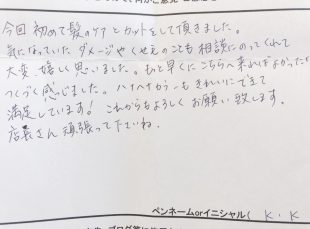 今回 初めて髪のケアとカットをして頂きました。
気になっていた ダメージやくせ毛のことも 相談にのってくれて
大変、嬉しく思いました。もっと早くにこちらへ来ればよかったと
つくづく感じました。 もきれいにできて
満足しています! これからもよろしく お願い致します。
店長さん頑張って下さいね。
ペンネームorイニシャル( K・K